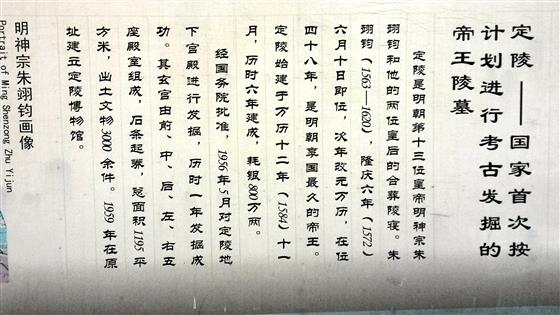 定陵——国家首次按
计划进行考古发掘的
帝王陵墓
定陵是明朝第十三位皇帝明神宗朱
翊钧和他的两位皇后的合葬陵寝。朱
翊钧(1563—1620),隆庆六年(1572)
六月十日即位,次年改元万历,在位
四十八年,是明朝享国最久的帝王。
定陵始建于万历十二年(1584)十一
月,历时六年建成,耗银800万两。
经国务院批准,1956年5月对定陵地
下宫殿进行发掘,历时一年发掘成
功。其玄宫由前、中、后、左、右五
座殿室组成,石条起券,总面积1195平
方米,出土文物3000余件。1959年在原
址建立定陵博物馆。
明神宗朱翊钧画像
Portrait of Ming Shenzong Zhu Yijun